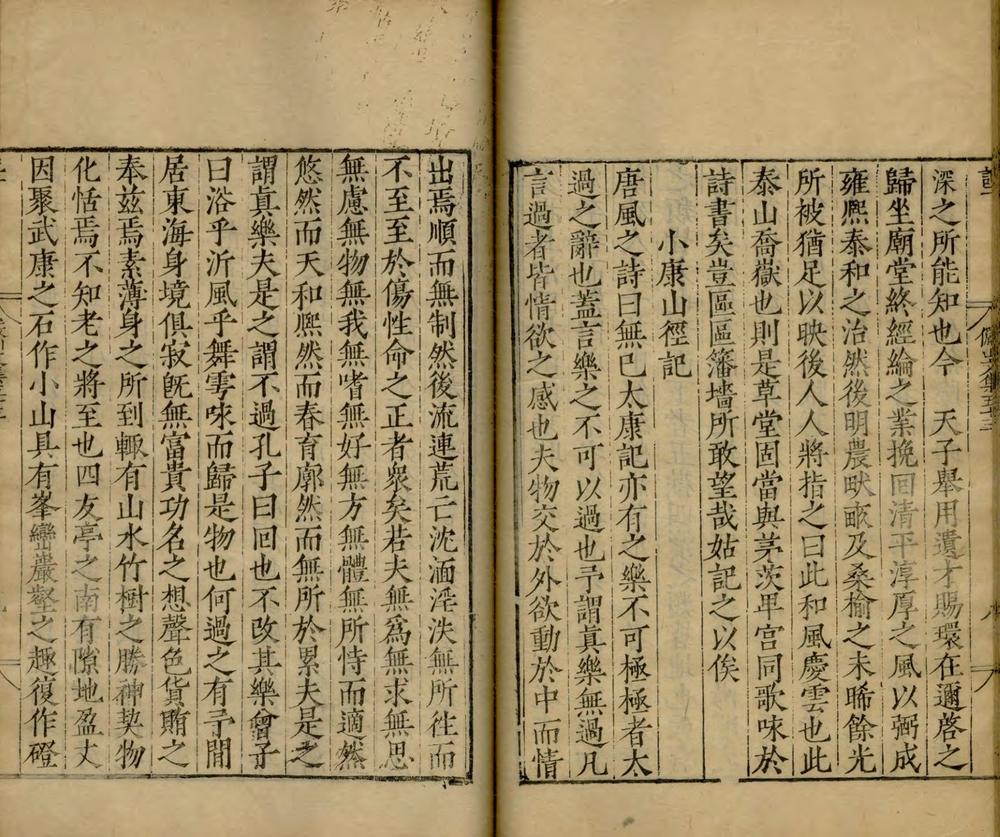 深之所能知也今　天子舉用遺才賜環在邇啓之
歸坐廟堂終經綸之業挽回清平淳厚之風以弼成
雍熙泰和之治然後明農畎畝及桑榆之未晞餘光
所被猶足以映後人人將指之曰此和風慶雲也此
泰山喬嶽也則是草堂固當與茅茨卑宫同歌味於
詩書矣豈區區籓墻所敢望哉姑記之以俟
小康山徑記
唐風之詩曰無已太康記亦有之樂不可極極者太
過之辭也蓋言樂之不可以過也予謂真樂無過凡
言過者皆情欲之感也夫物交於外欲動於中而情
出焉順而無制然後流連荒亡沈湎淫泆無所徃而
不至至於傷性命之正者衆矣若夫無為無求無思
無慮無物無我無嗜無好無方無體無所恃而適然
悠然而天和熈然而春育廓然而無所於累夫是之
謂真樂夫是之謂不過孔子曰回也不改其樂曾子
曰浴乎沂風乎舞雩咏而歸是物也何過之有予閒
居東海身境俱寂旣無富貴功名之想聲色貨賄之
奉兹焉素薄身之所到輙有山水竹樹之勝神契物
化恬焉不知老之將至也四友亭之南有隙地盈丈
因聚武康之石作小山具有峯巒巖壑之趣復作磴